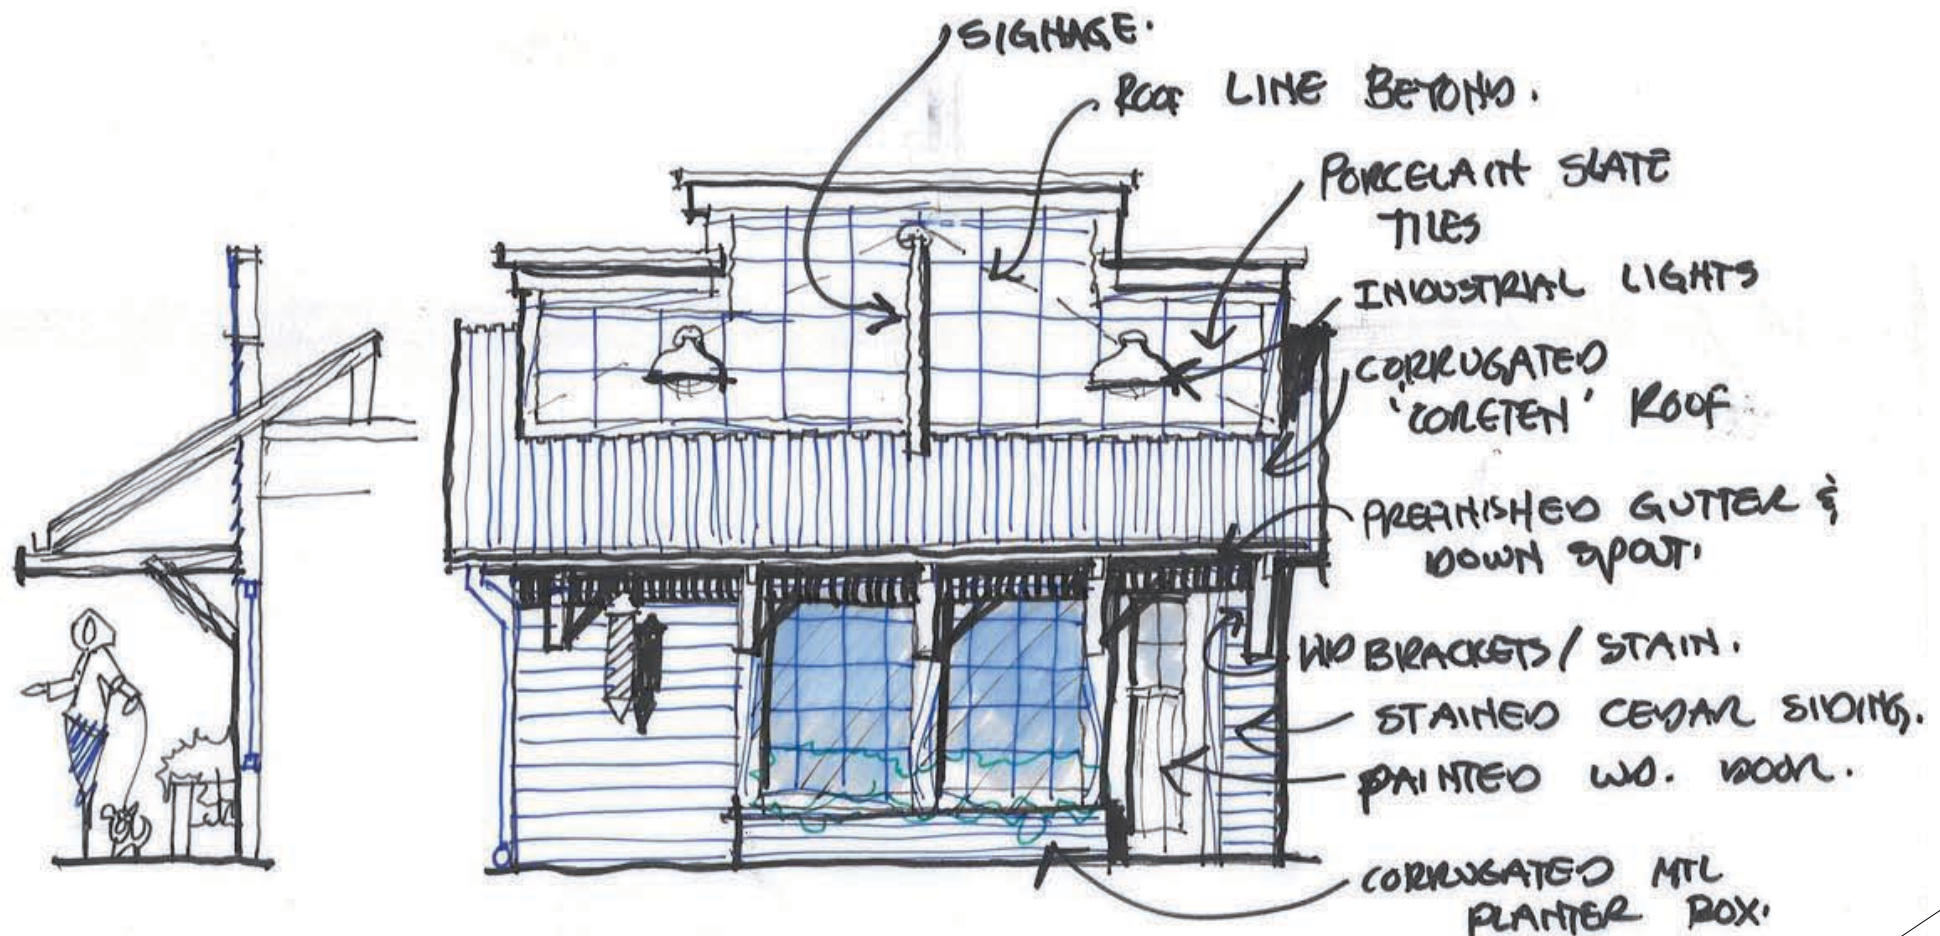 SIGNAGE.
ROOF LINE BEYOND.
PORCELAIN SLATE
TILES
INDUSTRIAL LIGHTS
CORRUGATED
'CORETEN' ROOF
PREFINISHED GUTTER &
DOWN SPOUT.
WD BRACKETS / STAIN.
STAINED CEDAR SIDING.
PAINTED WD. DOOR.
CORRUGATED MTL
PLANTER BOX.